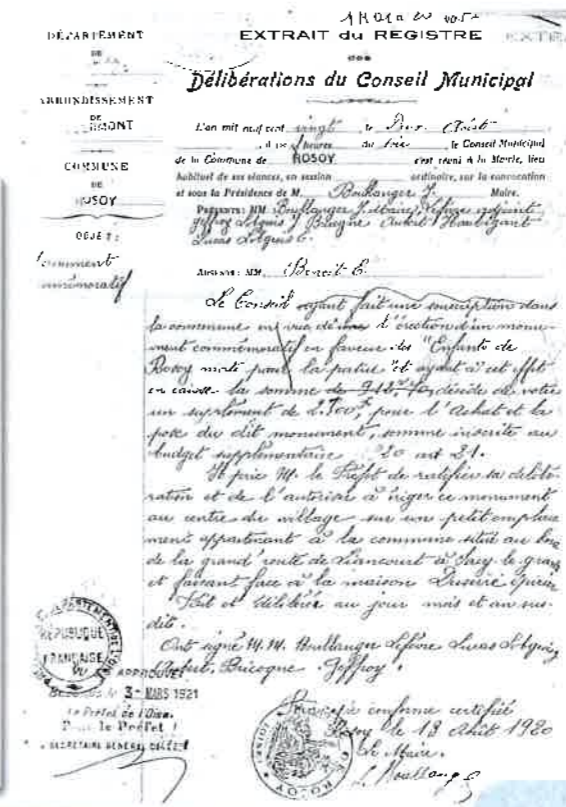 DÉPARTEMENT
DE
EXTRAIT du REGISTRE
DES
Délibérations du Conseil Municipal
ARRONDISSEMENT
DE
CLERMONT
COMMUNE
DE
ROSOY
OBJET :
monument
commémoratif
L'an mil neuf cent vingt, le Août
, à heures du soir, le Conseil Municipal
de la Commune de ROSOY s'est réuni à la Mairie, lieu
habituel de ses séances, en session ordinaire, sur la convocation
et sous la Présidence de M. Boullanger J. Maire.
PRÉSENTS : MM. Boullanger J. Maire, Lefèvre adjoint
Geffroy
Lucas
ABSENTS : MM. Benoit E.
Le Conseil ayant fait une souscription dans
la commune en vue de l'érection d'un monu-
ment commémoratif en faveur des "Enfants de
Rosoy morts pour la patrie" et ayant à cet effet
en caisse la somme de décide de voter
un supplément de pour l'Achat et la
pose du dit monument, somme inscrite au
budget supplémentaire 20 art 21.
Et prie M. le Préfet de ratifier sa délibé-
ration et de l'autoriser à ériger ce monument
au centre du village sur un petit emplace
ment appartenant à la commune situé au bord
de la grand'route de Liancourt à Sacy le grand
et faisant face à la maison
Fait et délibéré au jour mois et an sus-
dits.
Ont signé M.M. Boullanger Lefèvre Lucas
Bricogne Geffroy.
RÉPUBLIQUE
FRANÇAISE
VU
APPROUVÉ
3 - MARS 1921
Le Préfet de l'Oise,
Pour le Préfet
SECRÉTAIRE GÉNÉRAL DÉLÉGUÉ
Pour copie conforme certifié
Rosoy le 18 Août 1920
Le Maire.
J. Boullanger